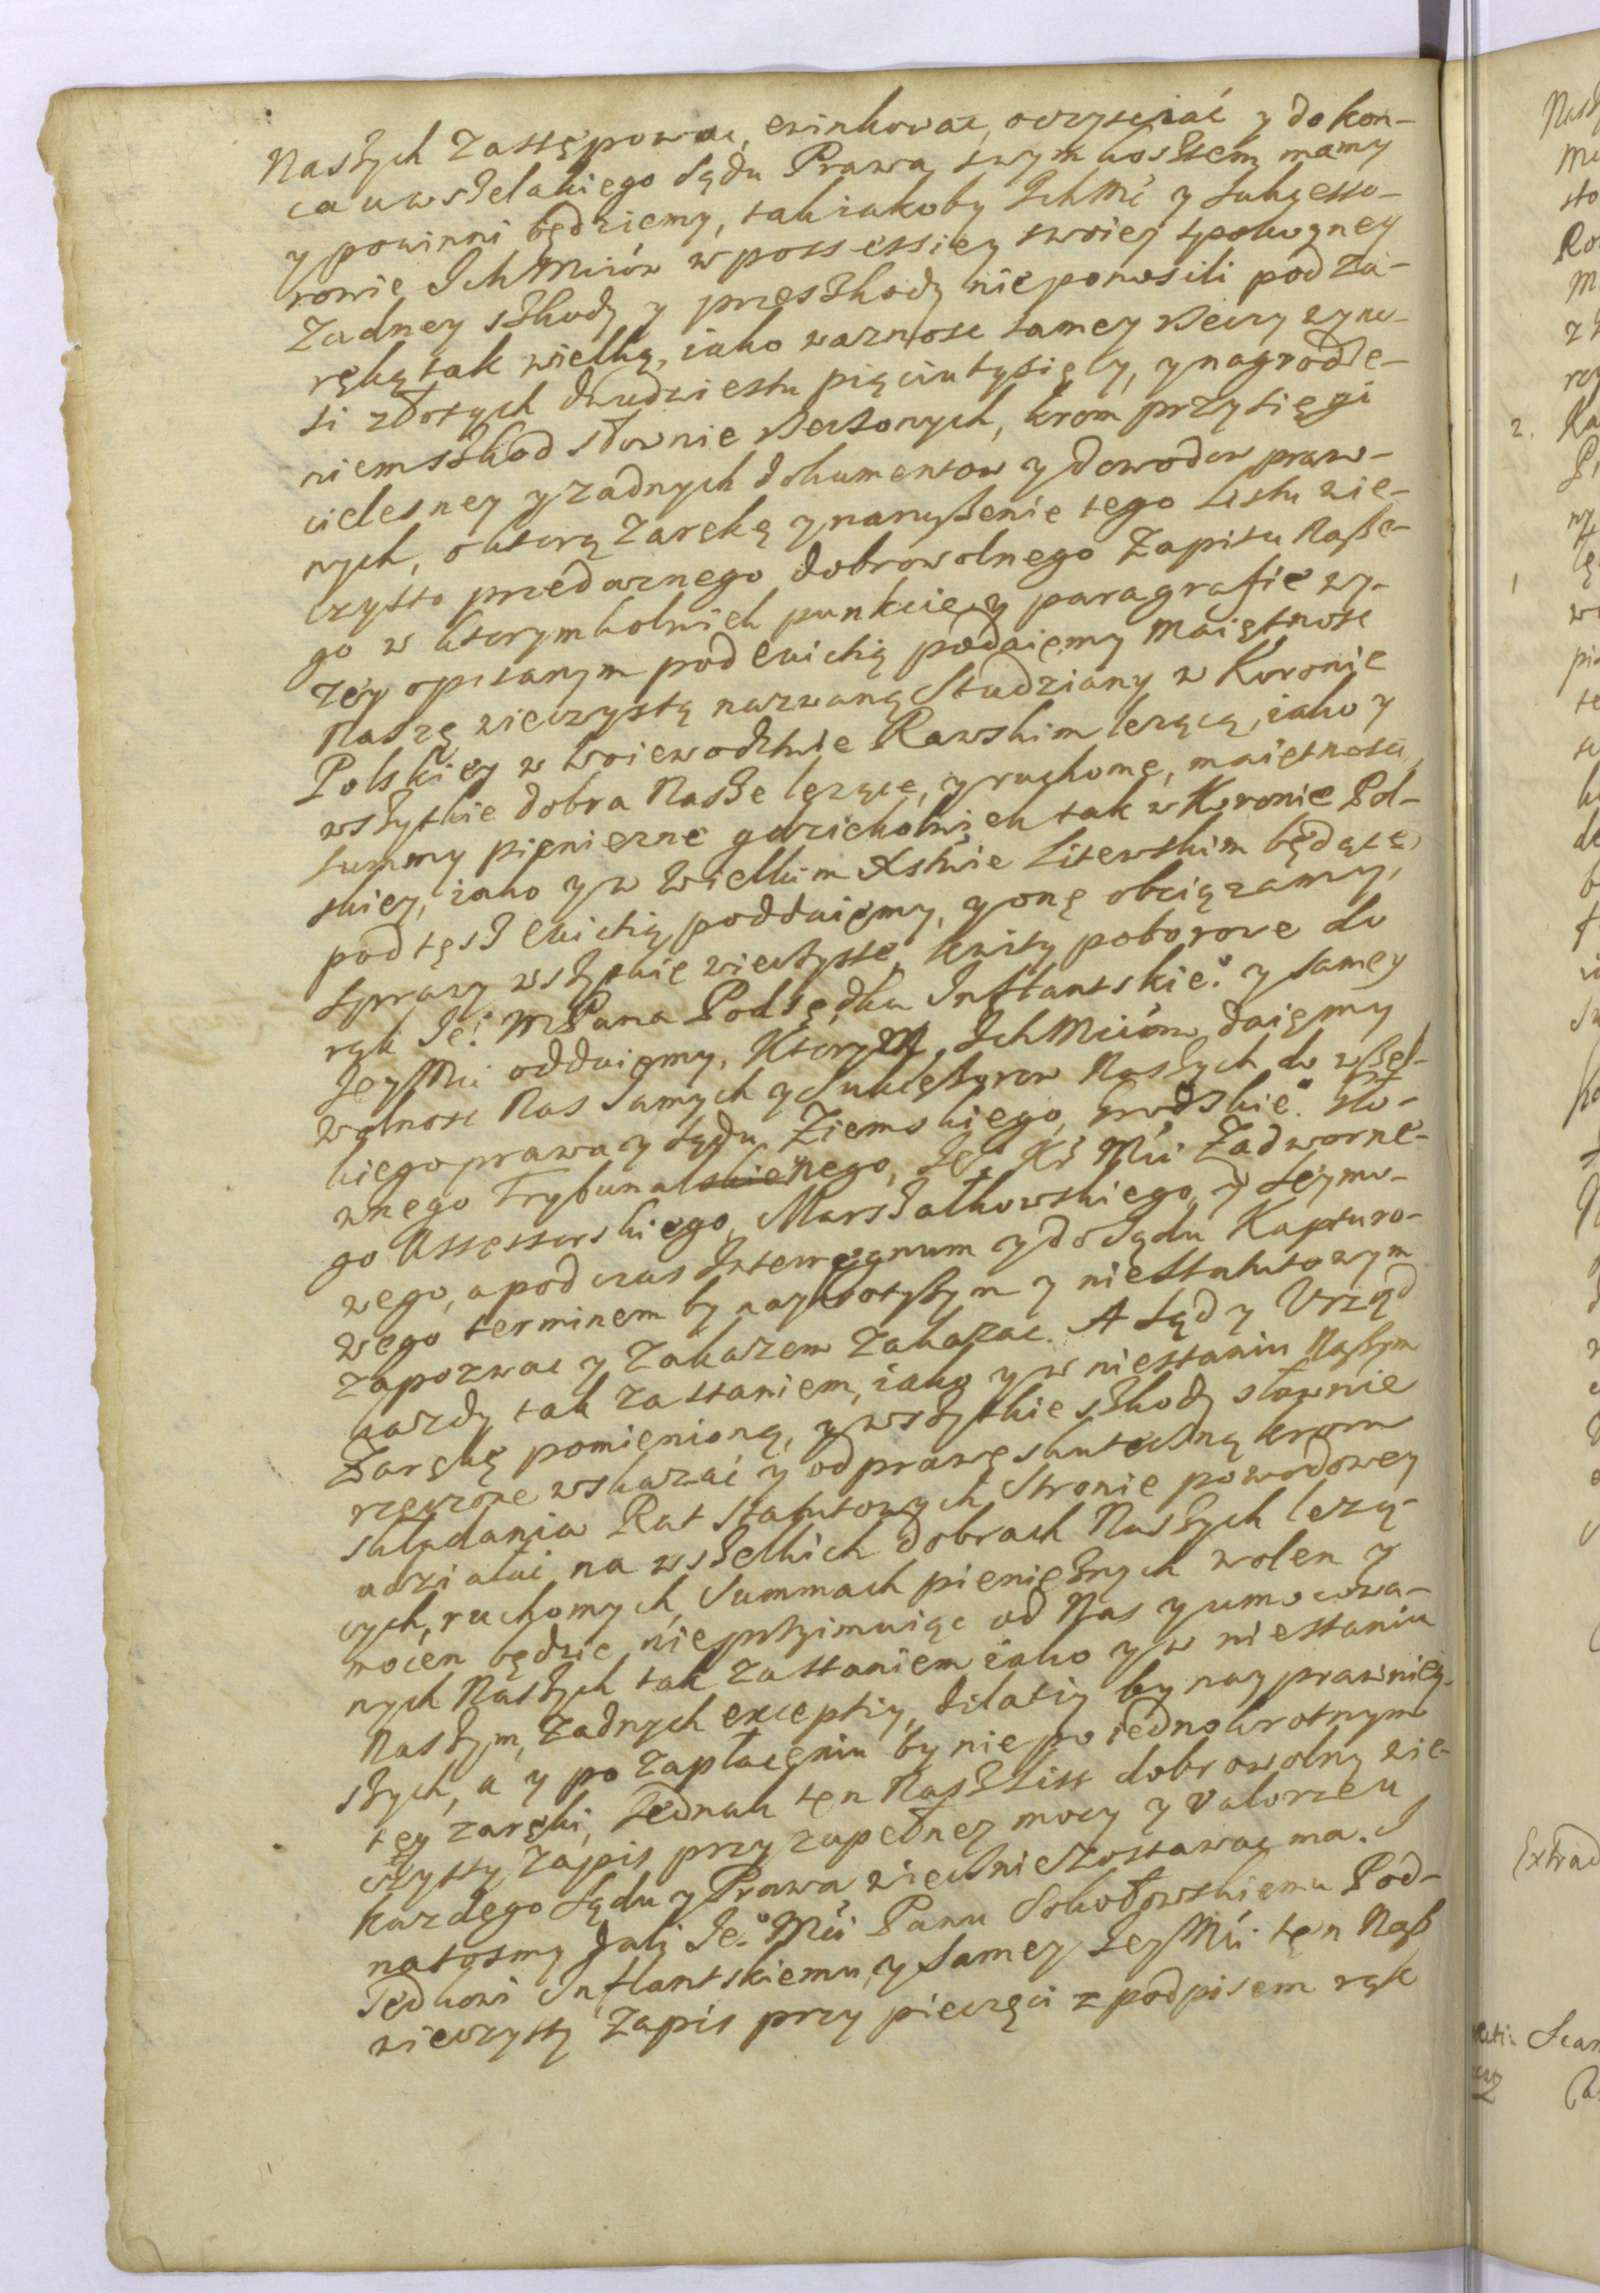 Naszych zastępować, ewinkować, oczysciać y do kon-
ca u wszelakiego Sądu Prawa swym kosztem mamy
y powinni będziemy, tak iakoby Ich Mć y Sukcesso-
rowie Ich Mciów w possessiey swoiey spokoyney
Zadney szkody y przeszkody nieponosili pod za-
ręką tak wielką, iako waznosc samey Rzeczy wyno-
si złotych dwudziestu pięciu tysięcy, y nagrodze-
niem szkod słownie Rzeczonych, krom przysięgi
cielesney y zadnych dokumentow y dowodow praw-
nych, o ktorą Zarękę y naruszenie tego Listu wie-
czysto przedaznego dobrowolnego Zapisu Nasze-
go w ktorymkolwiek punkcie y paragrafie wy-
zey opisanym pod ewictią poddaiemy Maiętnosc
Naszę wieczystą nazwaną Studziany w Koronie
Polskiey w Woiewodztwie Rawskim lezącą, iako y
wszytkie dobra Nasze lezące, y ruchome, maiętnosci,
summy pieniezne gdziekolwiek tak w Koronie Pol-
skiey, iako y w Wielkim Xstwie Litewskim będące
pod tęsz ewictią poddaiemy, y onę obciązamy,
sprawy wszytkie wieczyste, kwity poborowe do
rąk Je° MPana Podsędka Inflantskie° y samey
JeyMci oddaiemy, Ktorym, Ich Mciom daiemy
wolnosc Nas samych y Sukcessorow Naszych do wszel-
kiego prawa y sądu Ziemskiego, Grodzkie° Gło-
wnego Trybunalskienego, Je° Kr Mci Zadworne-
go Assessorskiego, Marszałkowskiego, y Seymo-
wego, a pod czas Interregnum y do Sądu Kapturo-
wego terminem by naykrotszym y niestatutowym
zapozwac y Zakazem Zakazac. A Sąd y Vrząd
kazdy tak za staniem, iako y w niestaniu Naszym
Zarękę pomienioną, y wszytkie szkody słownie
rzeczone wskazać y odprawę skuteczną krom
składania Rat Statutowych Stronie powodowey
udziałać na wszelkich dobrach Naszych lezą-
cych, ruchomych, Summach pienięznych wolen y
mocen będzie nieprzyimuiąc od Nas y umocowa-
nych Naszych tak za staniem iako y w niestaniu
Naszym, zadnych exceptiy, dilatiy by nayprawniey-
szych, a y po zapłaceniu by niepoiednokrotnym
tey zaręki, Jednak ten Nasz List dobrowolny wie-
czysty Zapis przy zupełney mocy y valorzeu
kazdego Sądu y Prawa wiecznie zostawac ma. I
natosmy dali Je° Mći Panu Sokołowskiemu Pod-
sędkowi Inflantskiemu, y Samey Jey Mći ten Nasz
wieczysty Zapis przy pieczęci z podpisem rąk